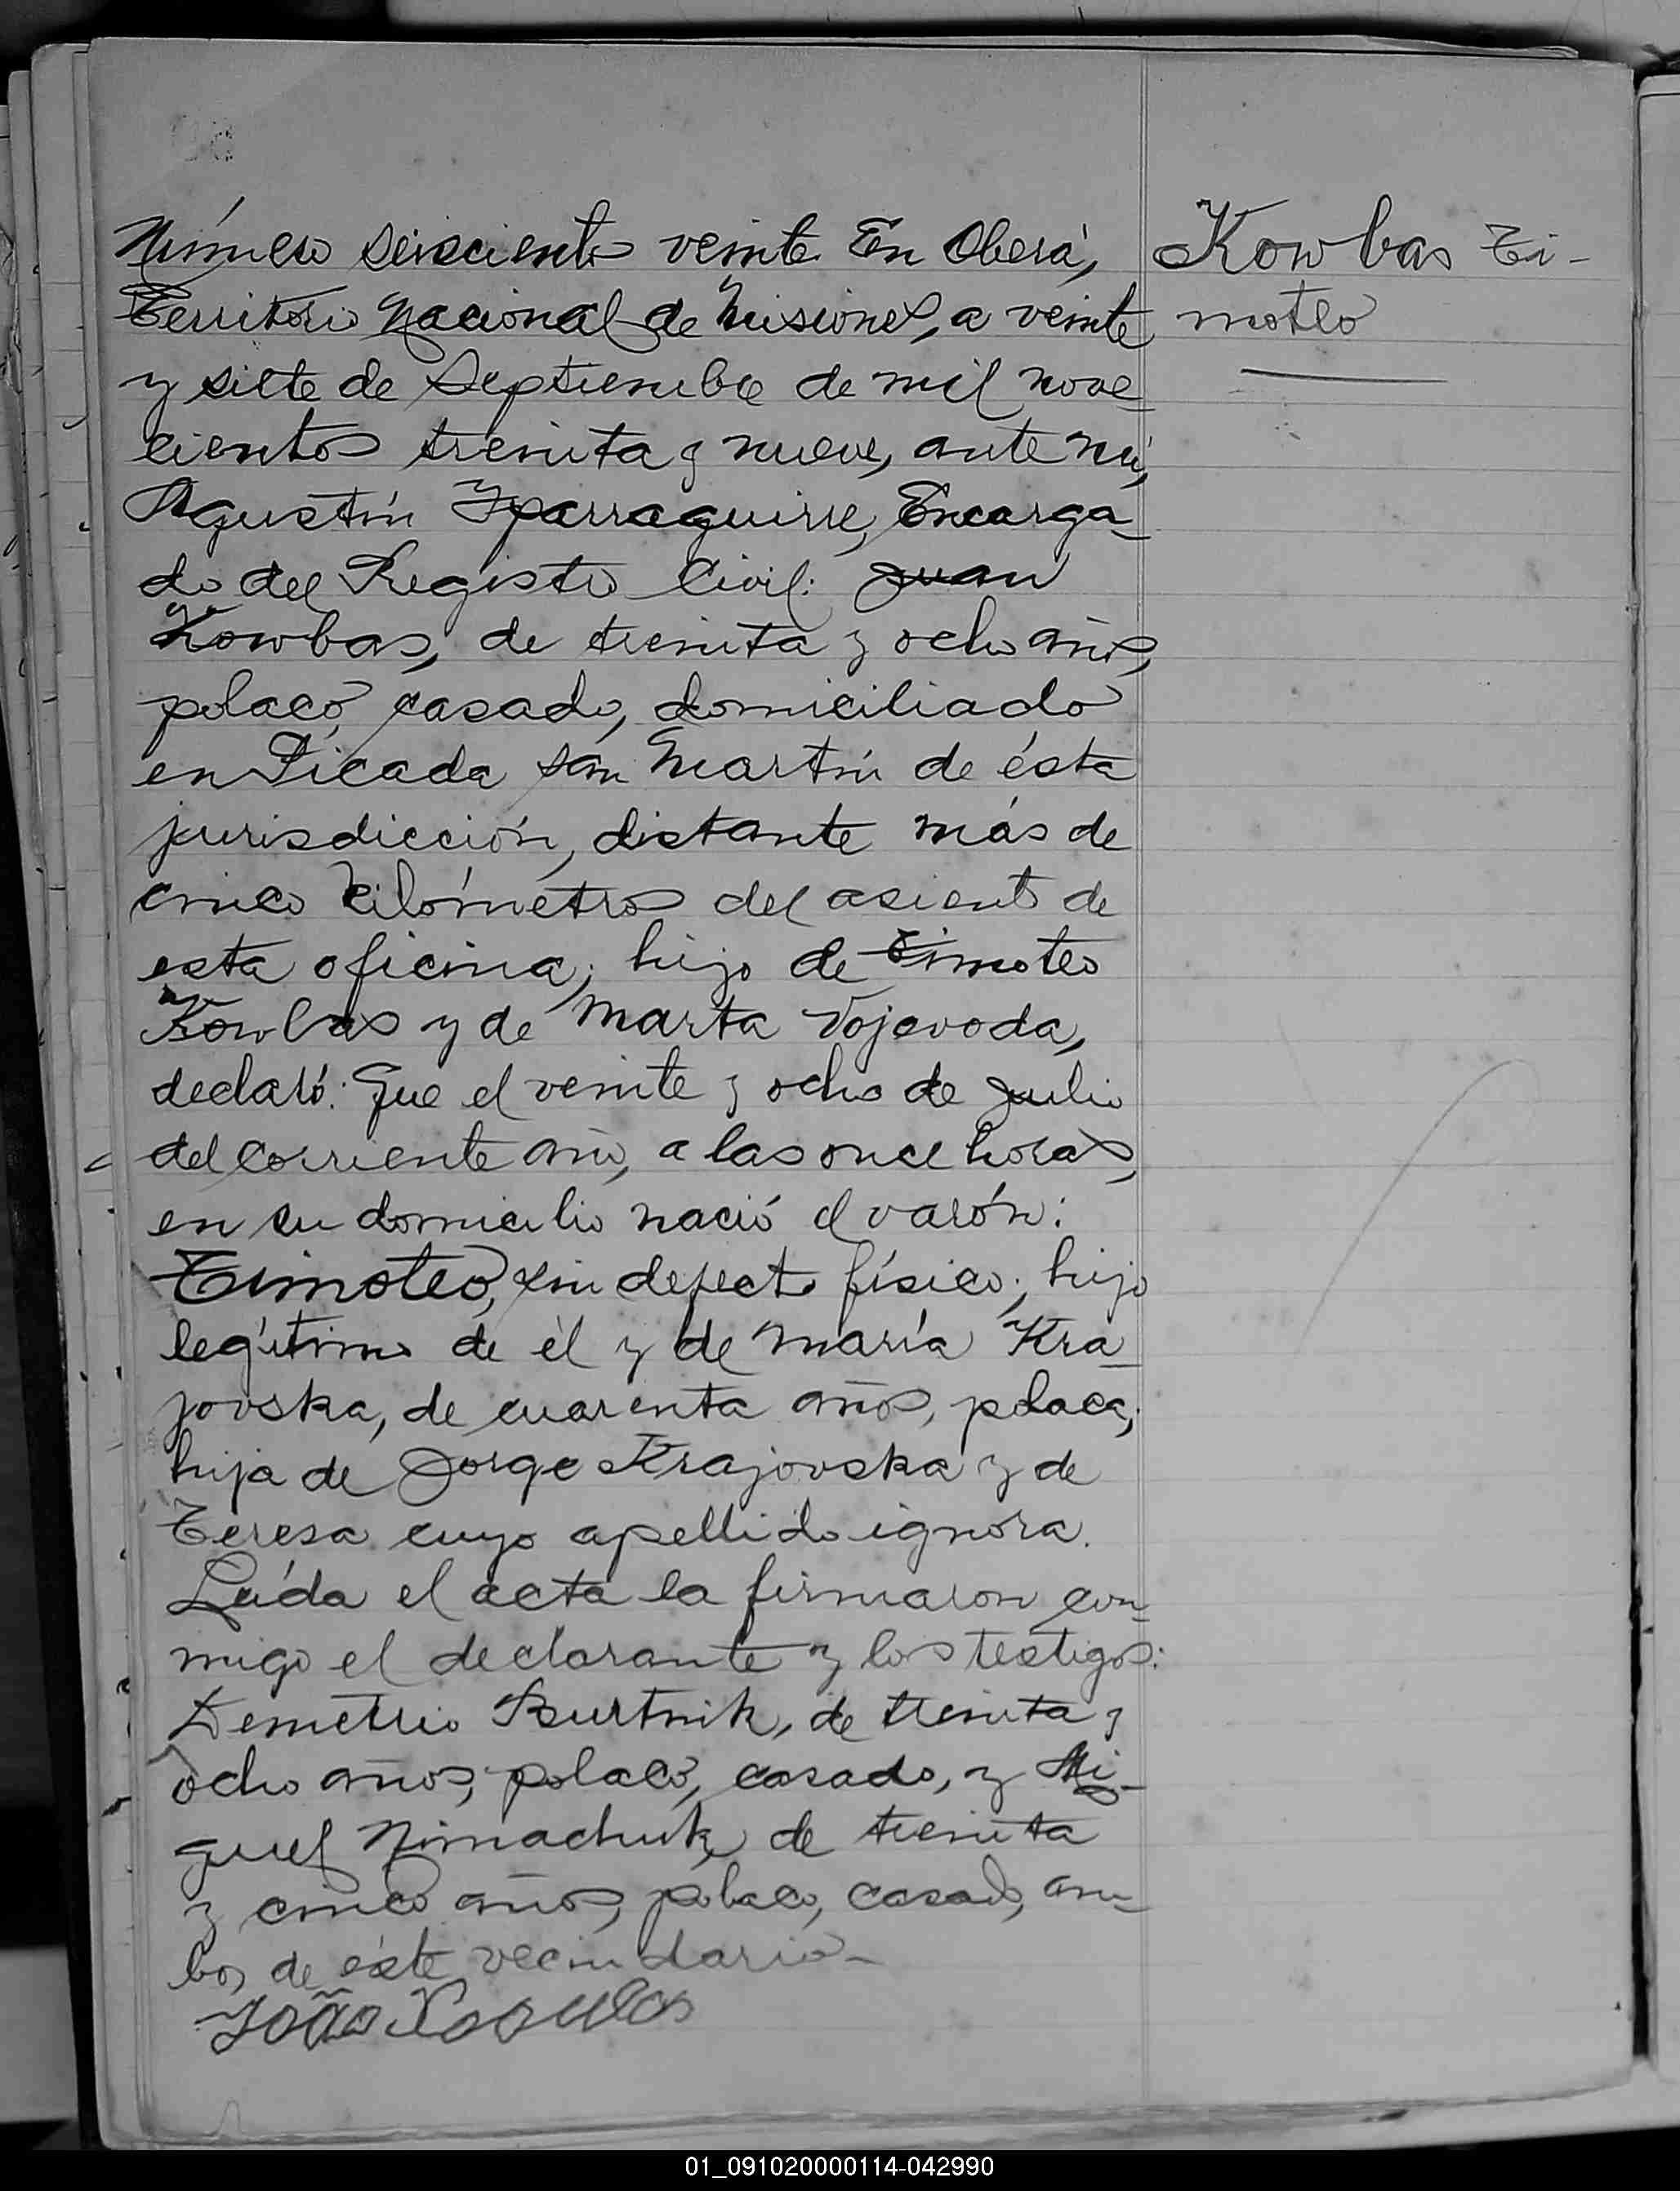 Número seiscientos veinte. En Oberá,
Territorio Nacional de Misiones, a veinte
y siete de Septiembre de mil nove-
cientos treinta y nueve, ante mí,
Agustín Yparraguirre, Encarga-
do del Registro Civil: Juan
Kowbas, de treinta y ocho años,
polaco, casado, domiciliado
en Picada San Martín de ésta
jurisdicción, distante más de
cinco kilómetros del asiento de
esta oficina; hijo de Timoteo
Kowbas y de Marta Vojevoda,
declaró: Que el veinte y ocho de Julio
del corriente año, a las once horas,
en su domicilio nació el varón:
Timoteo, sin defecto físico; hijo
legítimo de él y de María Kra-
jovska, de cuarenta años, polaca,
hija de Jorge Krajovska y de
Teresa cuyo apellido ignora.
Leída el acta la firmaron con-
migo el declarante y los testigos:
Demetrio Burtnik, de treinta y
ocho años, polaco, casado, y Mi-
guel Nimachuk, de treinta
y cinco años, polaco, casado, am-
bos de éste vecindario-
João
Kowbas Ti-
moteo
01_091020000114-042990